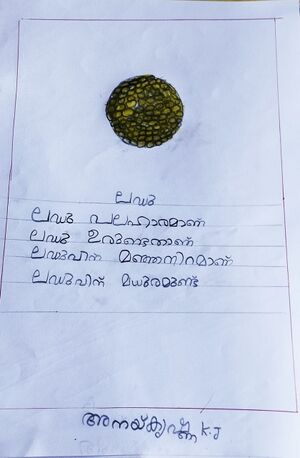 ലഡു
ലഡു പലഹാരമാണ്
ലഡു ഉരുണ്ടതാണ്
ലഡുവിന് മഞ്ഞനിറമാണ്
ലഡുവിന് മധുരമുണ്ട്
അനയ്കൃഷ്ണ K.J